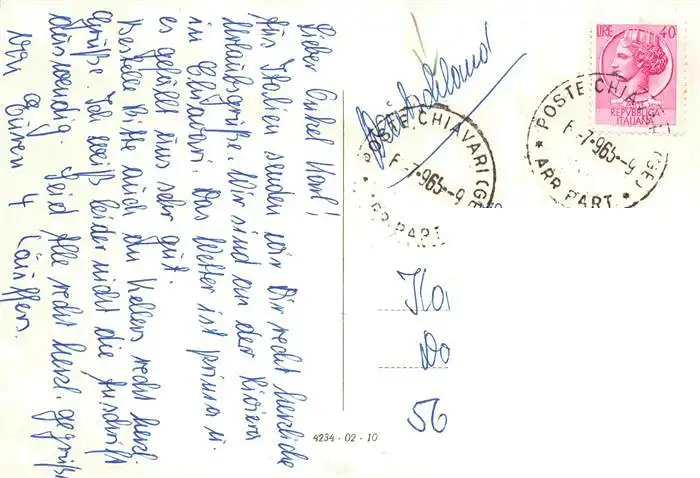 Lieber Onkel Karl!
Aus Italien senden wir Dir recht herzliche
Urlaubsgrüße. Wir sind an der Riviera
in Chiavari. Das Wetter ist prima u.
es gefällt uns sehr gut.
Bestelle bitte auch den Kellers recht herzl.
Grüße. Ich weiß leider nicht die Anschrift
auswendig. Seid alle recht herzl. gegrüßt
von Euren 4
Deutschland
LIRE 40
REPVBBLICA
ITALIANA
POSTE CHIAVARI (GE)
-7-965--9
ARR. PART.
POSTE CHIAVARI (GE)
-7-965--9
ARR. PART.
Ka
Do
56
4234 - 02 - 10